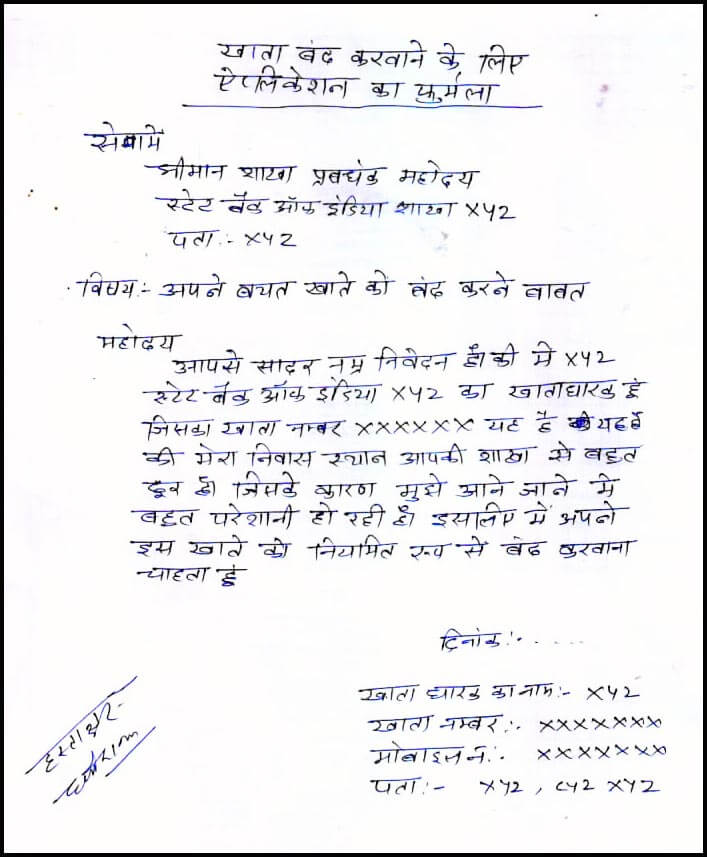 खाता बंद करवाने के लिए
ऐप्लिकेशन का फुर्मुला
सेवामें
श्रीमान शाखा प्रबधंक महोदय
स्टेट बैंक ऑफ इंडिया शाखा XYZ
पता:- XYZ
विषय:- अपने बचत खाते को बंद करने बाबत
महोदय
आपसे सादर नम्र निवेदन है। की में XYZ
स्टेट बैंक ऑफ इंडिया XYZ का खाताधारक हूं
जिसका खाता नम्बर XXXXXX यह है यह है
की मेरा निवास स्थान आपकी शाखा से बहुत
दूर है। जिसके कारण मुझे आने जाने मे
बहुत परेशानी हो रही है। इसलिए में अपने
इस खाते को नियमित रूप से बंद करवाना
चाहता हूं
दिनांक:- . . . . .
खाता धारक का नाम:- XYZ
खाता नम्बर:- XXXXXXX
मोबाइल नं:- XXXXXXX
पता:- XYZ, CYZ XYZ
हस्ताक्षर-